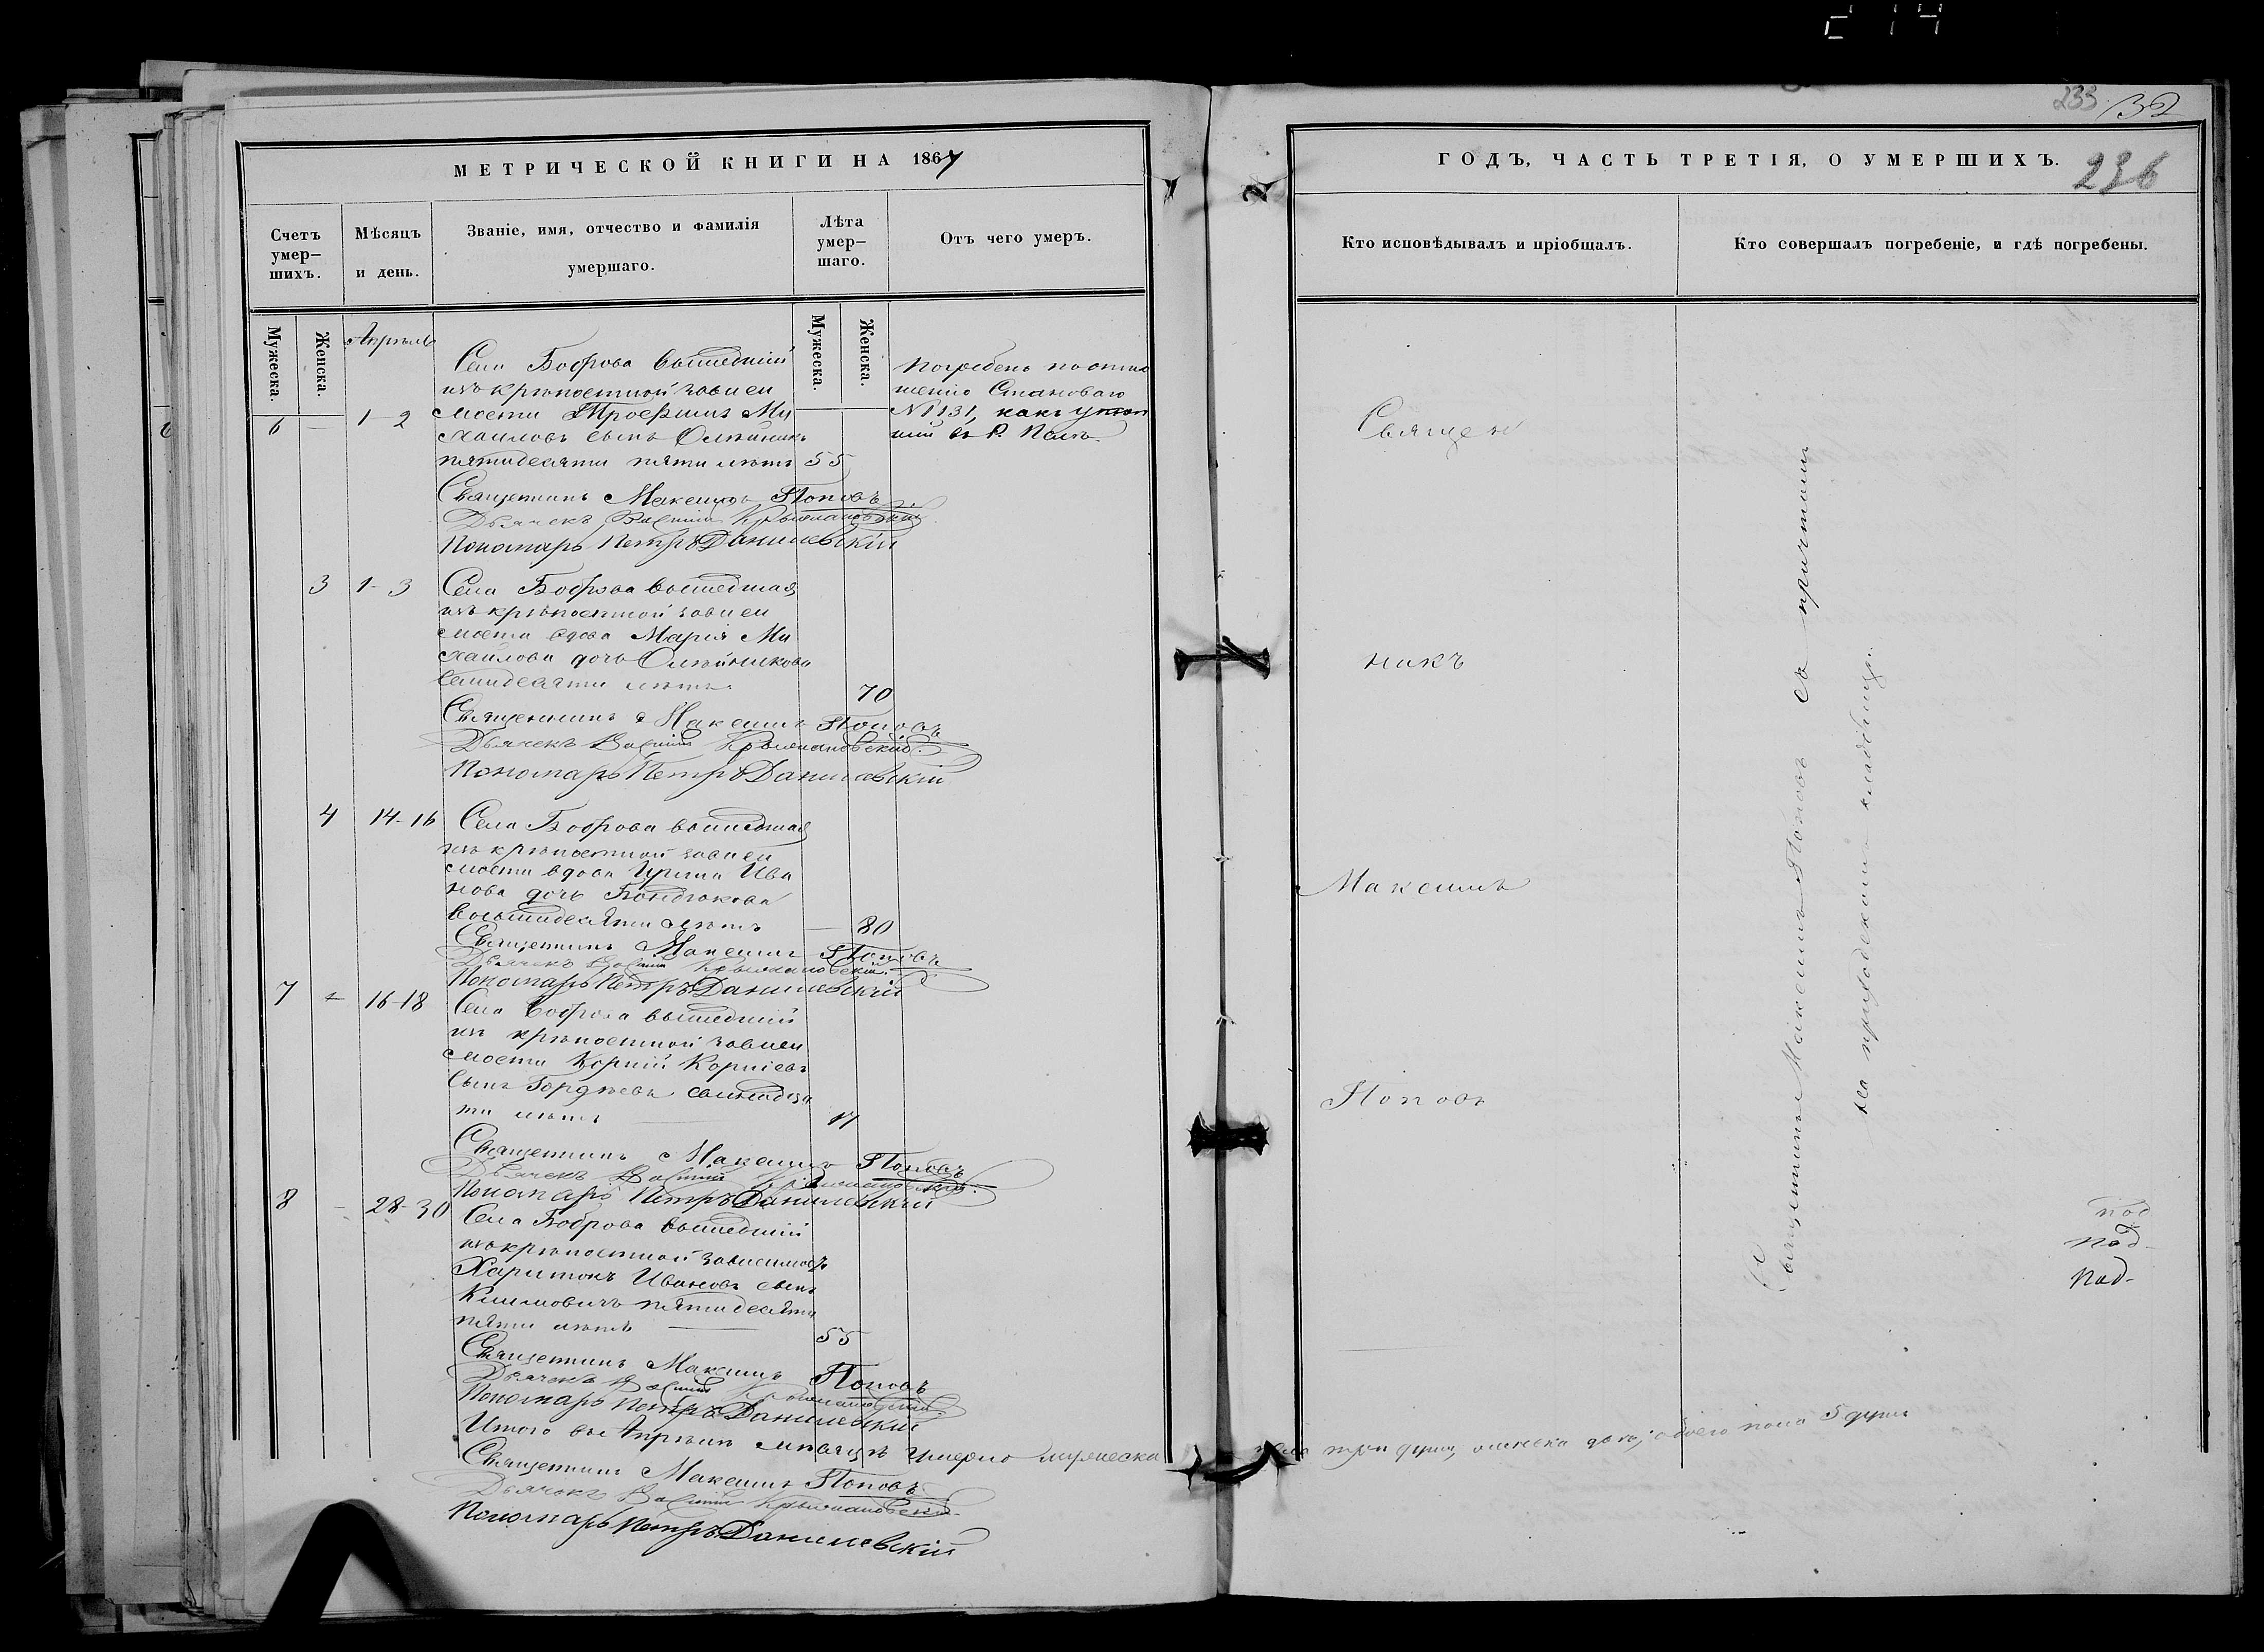 233 132
МЕТРИЧЕСКОЙ КНИГИ НА 1867
ГОДЪ, ЧАСТЬ ТРЕТІЯ, О УМЕРШИХЪ.
236
Счетъ умер-шихъ.
Мѣсяцъ и день.
Званіе, имя, отчество и фамилія умершаго.
Лѣта умер-шаго.
Отъ чего умеръ.
Кто исповѣдывалъ и пріобщалъ.
Кто совершалъ погребеніе, и гдѣ погребены.
Мужеска.
Женска.
Мужеска.
Женска.
Апрѣль
6 — 1-2
Села Боброва вышедшій
изъ крѣпостной зависи
мости Трофимъ Ми
хайловъ сынъ Олейникъ
пятидесяти пяти лѣтъ 55
Погребенъ по отно
шенію Становаго
№ 1131, какъ утоп
шій въ Р.
Священникъ Максимъ Поповъ
Дьячекъ Василій Крыжановскій
Пономарь Петръ Данилевскій
3 1-3
Села Боброва вышедшая
изъ крѣпостной зависи
мости вдова Марія Ми
хайлова дочь Олейникова
семидесяти лѣтъ. 70
Священникъ Максимъ Поповъ
Дьячекъ Василій Крыжановскій.
Пономарь Петръ Данилевскій
4 14-16
Села Боброва вышедшая
изъ крѣпостной зависи
мости вдова Ирина Ива
нова дочь Бондюкова
восьмидесяти лѣтъ — 80
Священникъ Максимъ Поповъ
Дьячекъ Василій Крыжановскій.
Пономарь Петръ Данилевскій
7 — 16-18
Села Боброва вышедшій
изъ крѣпостной зависи
мости Корній Корніевъ
сынъ Гордѣевъ
ти лѣтъ —
Священникъ Максимъ Поповъ
Дьячекъ Василій Крыжановскій.
Пономарь Петръ Данилевскій
8 — 28-30
Села Боброва вышедшій
изъ крѣпостной зависимос
Харитонъ Ивановъ сынъ
Климовичъ пятидесяти
пяти лѣтъ — 55
Священникъ Максимъ Поповъ
Дьячекъ Василій Крыжановскій.
Пономарь Петръ Данилевскій
Итого въ Апрѣлѣ мѣсяцѣ умерло мужеска
пола три души, женска двѣ, обоего пола 5 душъ
Священникъ Максимъ Поповъ
Дьячекъ Василій Крыжановскій
Пономарь Петръ Данилевскій
Священ
никъ
Максимъ
Поповъ
Священникъ Максимъ Поповъ съ причтомъ
на приходскомъ кладбищѣ.
под
под-
под-